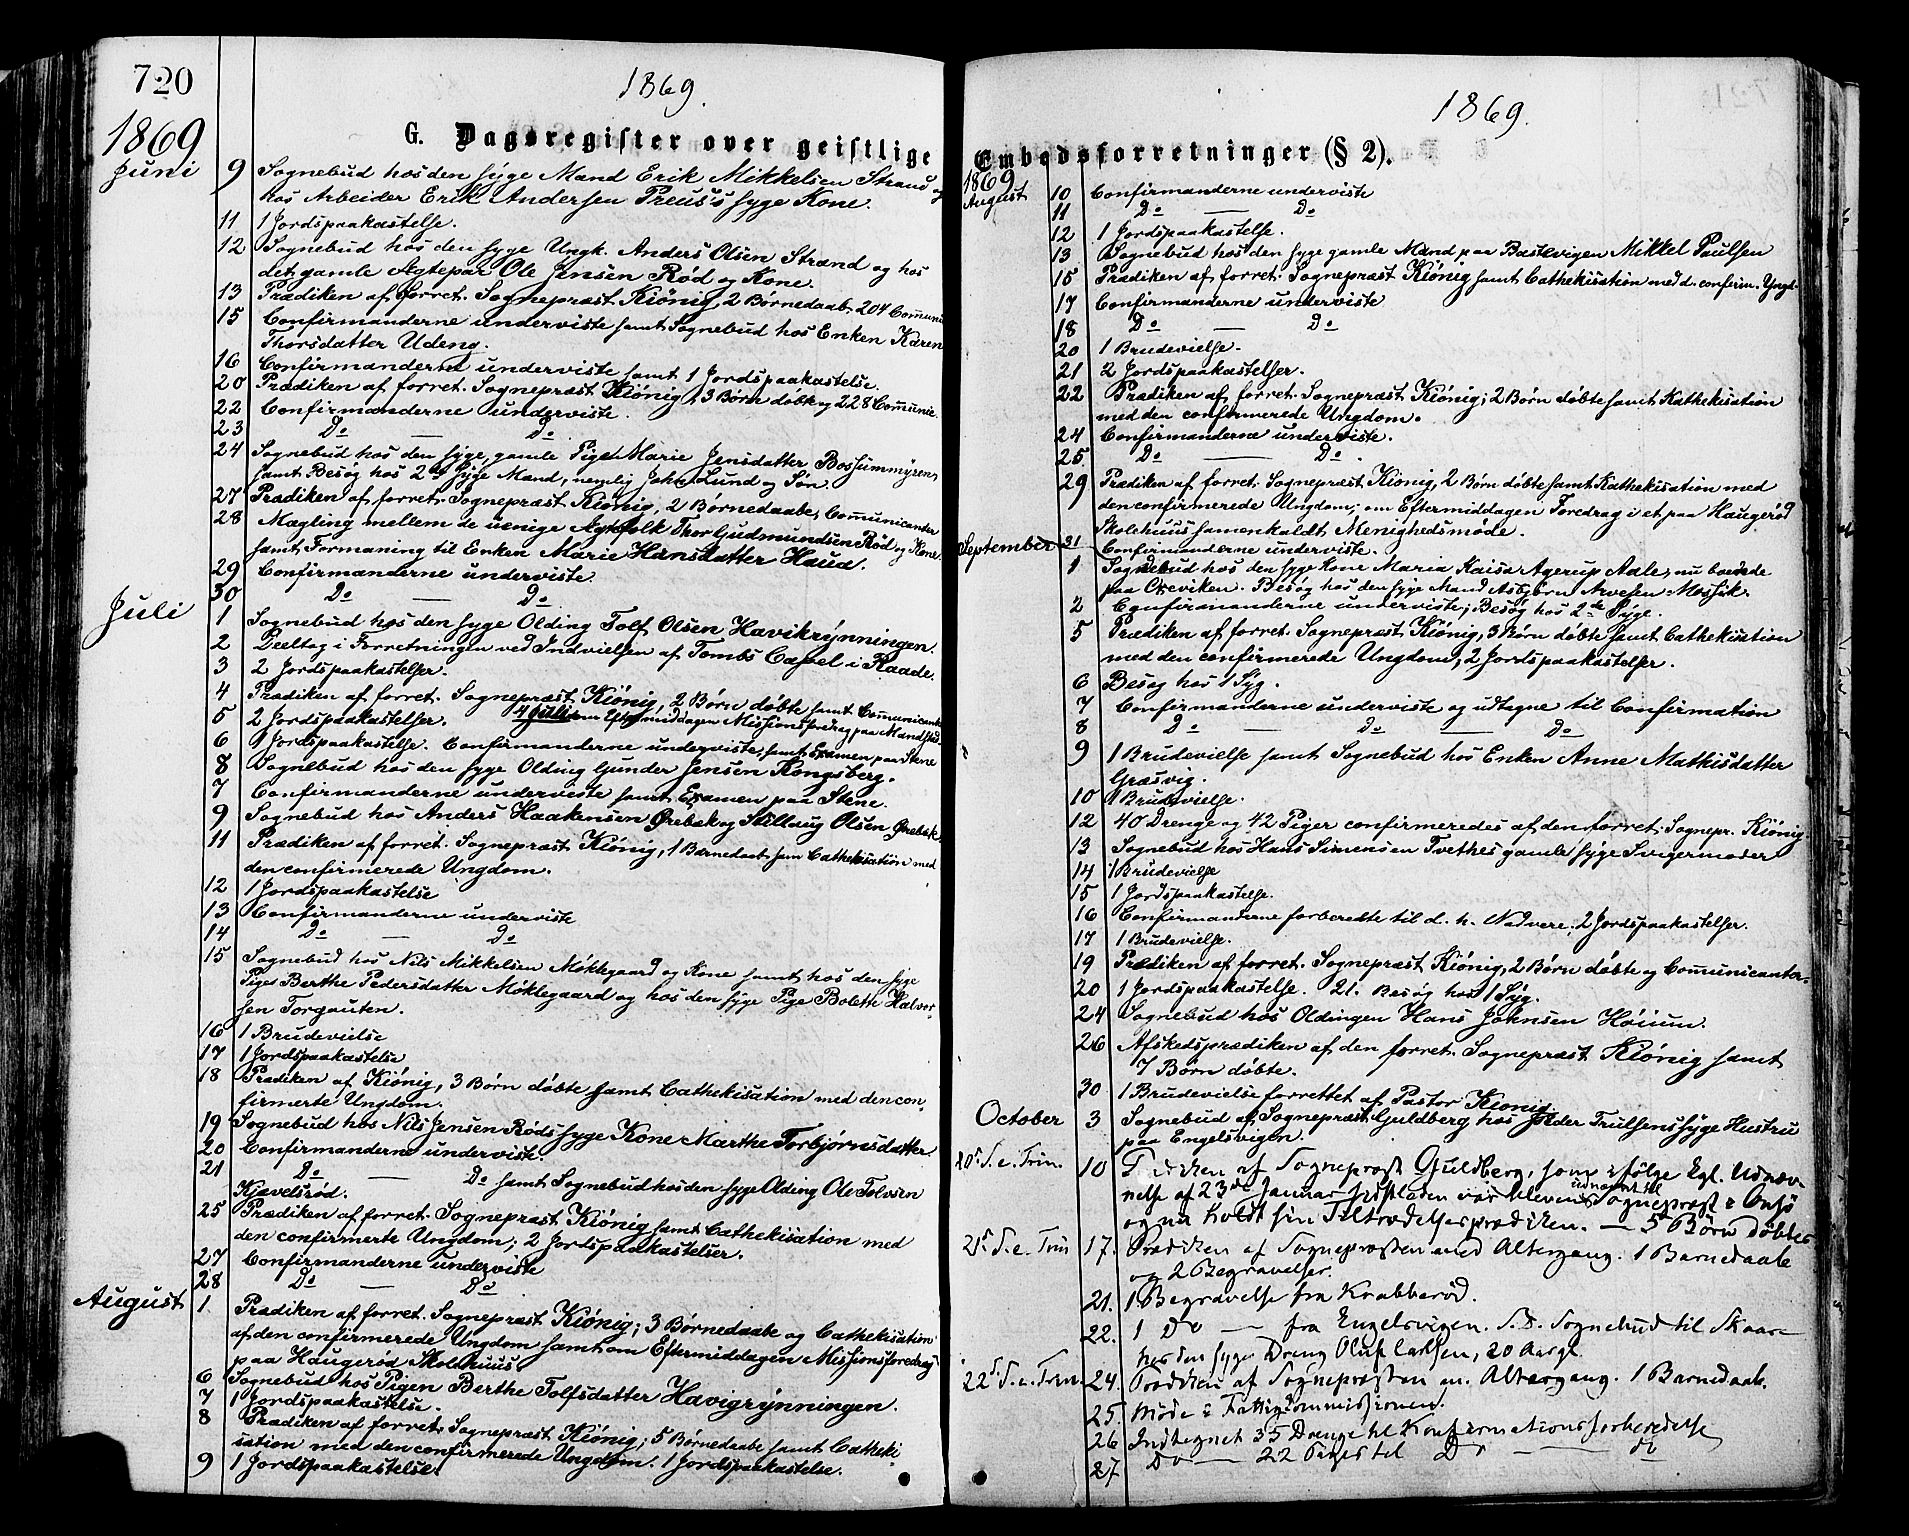 720
1869.
1869
G. Dagsregister over geistlige
Juni 9 Sognebud hos den syge Mand Erik Mikkelsen Strand og
hos Arbeider Erik Andersen Preus's syge Kone.
11 1 Jordspaakastelse.
12 Sognebud hos den syge Ungk. Anders Olsen Strand og hos
det gamle Ægtepar Ole Jensen Rød og Kone.
13 Prædiken af forret. Sognepræst Kiönig, 2 Børnedaab, 204 Communic
15 Confirmanderne underviste samt Sognebud hos Enken Karen
Thorsdatter Udeng.
16 Confirmanderne underviste samt 1 Jordspaakastelse.
20 Prædiken af forret. Sognepræst Kiönig, 3 Børn døbt og 228 Communic.
22 Confirmanderne underviste.
23 Do — Do
24 Sognebud hos den syge, gamle Pige Marie Jensdatter Bossummyren,
samt Besøg hos 2de syge Mand, nemlig Joh. Lund og Søn.
27 Prædiken af forret. Sognepræst Kiönig, 2 Børnedaabe, Communicanter
28 Mægling mellem de uenige Ægtefolk Thor Gudmundsen Rød og Kone.
samt Formaning til Enken Marie Hansdatter Haua.
29 Confirmanderne underviste.
30 Do — Do
Juli 1 Sognebud hos den syge Olding Tolf Olsen Havikrynningen.
2 Deeltog i Forretningen ved Indvielsen af Tombs Capel i Raade.
3 2 Jordspaakastelser.
4 Prædiken af forret. Sognepræst Kiönig, 2 Børn døbte samt Communicante
5 2 Jordspaakastelser. 4 Juli om Eftermiddagen Missionsforedrag paa
6 1 Jordspaakastelse. Confirmanderne underviste, samt Examen paa
8 Sognebud hos den syge Olding Gunder Jensen Kongsberg.
7 Confirmanderne underviste samt Examen paa Stene.
9 Sognebud hos Anders Haakensen Ørebæk og Stillaug Olsen Ørebæk
11 Prædiken af forret. Sognepræst Kiönig, 1 Barnedaab sam Cathekisation med
den confirmerede Ungdom.
12 1 Jordspaakastelse
13 Confirmanderne underviste
14 Do — Do
15 Sognebud hos Nils Mikkelsen Møklegaard og Kone samt hos den syge
Pige Berthe Pedersdatter Møklegaard og hos den syge Pige Bolette Halver-
sen Torgauten.
16 1 Brudevielse
17 1 Jordspaakastelse
18 Prædiken af Kiönig, 3 Børn døbte samt Cathekisation med den con-
firmerte Ungdom.
19 Sognebud hos Nils Jensen Røds syge Kone Marthe Torbjørnsdatter
20 Confirmanderne underviste.
21 Do — Do samt Sognebud hos den syge Olding Ole Tolvsen
Kjævelsrød.
25 Prædiken af forret. Sognepræst Kiönig samt Cathekisation med
den confirmerte Ungdom; 2 Jordspaakastelser.
27 Confirmanderne underviste
28 Do — Do
August 1. Prædiken af forret. Sognepræst Kiönig; 3 Børnedaabe og Cathekisation
af den confirmerede Ungdom samt om Eftermiddagen Missionsforedrag
paa Haugerød Skolehuus
6 Sognebud hos Pigen Berthe Tolfsdatter Havigrynningen.
7 1 Jordspaakastelse.
8 Prædiken af forret. Sognepræst Kiönig; 5 Børnedaabe samt Catheki-
sation med den confirmerede Ungdom. 1 Jordspaakastelse.
9 1 Jordspaakastelse.
1869.
Embedsforretninger (§ 2).
1869
August 10 Confirmanderne underviste
11 Do — Do
12 1 Jordspaakastelse.
13 Sognebud hos den syge gamle Mand paa Bastevigen Mikkel Paulsen
15 Prædiken af forret. Sognepræst Kiönig samt Cathekisation med d. confirm. Yngd.
17 Confirmanderne underviste
18 Do — Do
20 1 Brudevielse.
21 2 Jordspaakastelser.
22 Prædiken af forret. Sognepræst Kiönig; 2 Børn døbte samt Kathekisation
med den confirmerede Ungdom.
24 Confirmanderne underviste.
25. Do — Do.
29 Prædiken af forret. Sognepræst Kiönig, 2 Børn døbte samt Kathekisation med
den confirmerede Ungdom; om Eftermiddagen Foredrag i et paa Haugerød
Skolehuus samenkaldt Menighedsmøde.
31 Confirmanderne underviste.
September 1 Sognebud hos den syge Kone Maria Kaisa Agerup Adle, nu boende
paa Oxeviken. Besøg hos den syge Mand Asbjørn Arvesen Mossik.
2 Confirmanderne underviste; Besøg hos 2de Syge.
5 Prædiken af forret. Sognepræst Kiönig, 3 Børn døbte samt Cathekisation
med den confirmerede Ungdom, 2 Jordspaakastelser.
6 Besøg hos 1 Syg.
7 Confirmanderne underviste og udtagne til Confirmation
8 Do — Do — Do
9 1 Brudevielse samt Sognebud hos Enken Anne Mathisdatter
Græsvig.
10 1 Brudevielse.
12 40 Drenge og 42 Piger confirmeredes af den forret. Sognepr. Kiönig
13 Sognebud hos Hans Simensen Tvethes gamle syge Svigermoder
14 1 Brudevielse
15 1 Jordspaakastelse.
16 Confirmanderne forberedte til d. h. Nadvere; 2 Jordspaakastelser.
17 1 Brudevielse.
19 Prædiken af forret. Sognepræst Kiönig, 2 Børn døbte og Communicanter.
20 1 Jordspaakastelse. 21. Besøg hos 1 Syg.
24 Sognebud hos Oldingen Hans Johnsen Høium.
26 Afskedsprædiken af den forret. Sognepræst Kiönig samt
7 Børn døbte.
30 1 Brudevielse forrettet af Pastor Kiönig
October 3 Sognebud af Sognepræst Guldberg hos Peder Trulsens syge Hustru
paa Engelsvigen.
20 S. e. Trin. 10 Prædiken af Sognepræst Guldberg, som ifølge Kgl. Udnæv-
nelse af 23de Januar sidstleden var bleven udnævnt til Sognepræst i Onsø
og nu holdt sin Tiltrædelsesprædiken. — 5 Børn døbtes
21 S. e. Trin 17. Prædiken af Sognepræsten med Altergang. 1 Barnedaab
og 2 Begravelser.
21. 1 Begravelse fra Knabberød.
22. 1 Do — fra Engelsvigen. S. D. Sognebud til Skaar
hos den syge Dreng Oluf Carlsen, 20 Aar gl.
22 S. e. Trin. 24. Prædiken af Sognepræsten m. Altergang. 1 Barnedaab.
25. Møde i Fattigcommissionen.
26 Indtegnet 35 Drenge til Konfirmationsforberedelse
27. Do — 22 Piger til Do — do